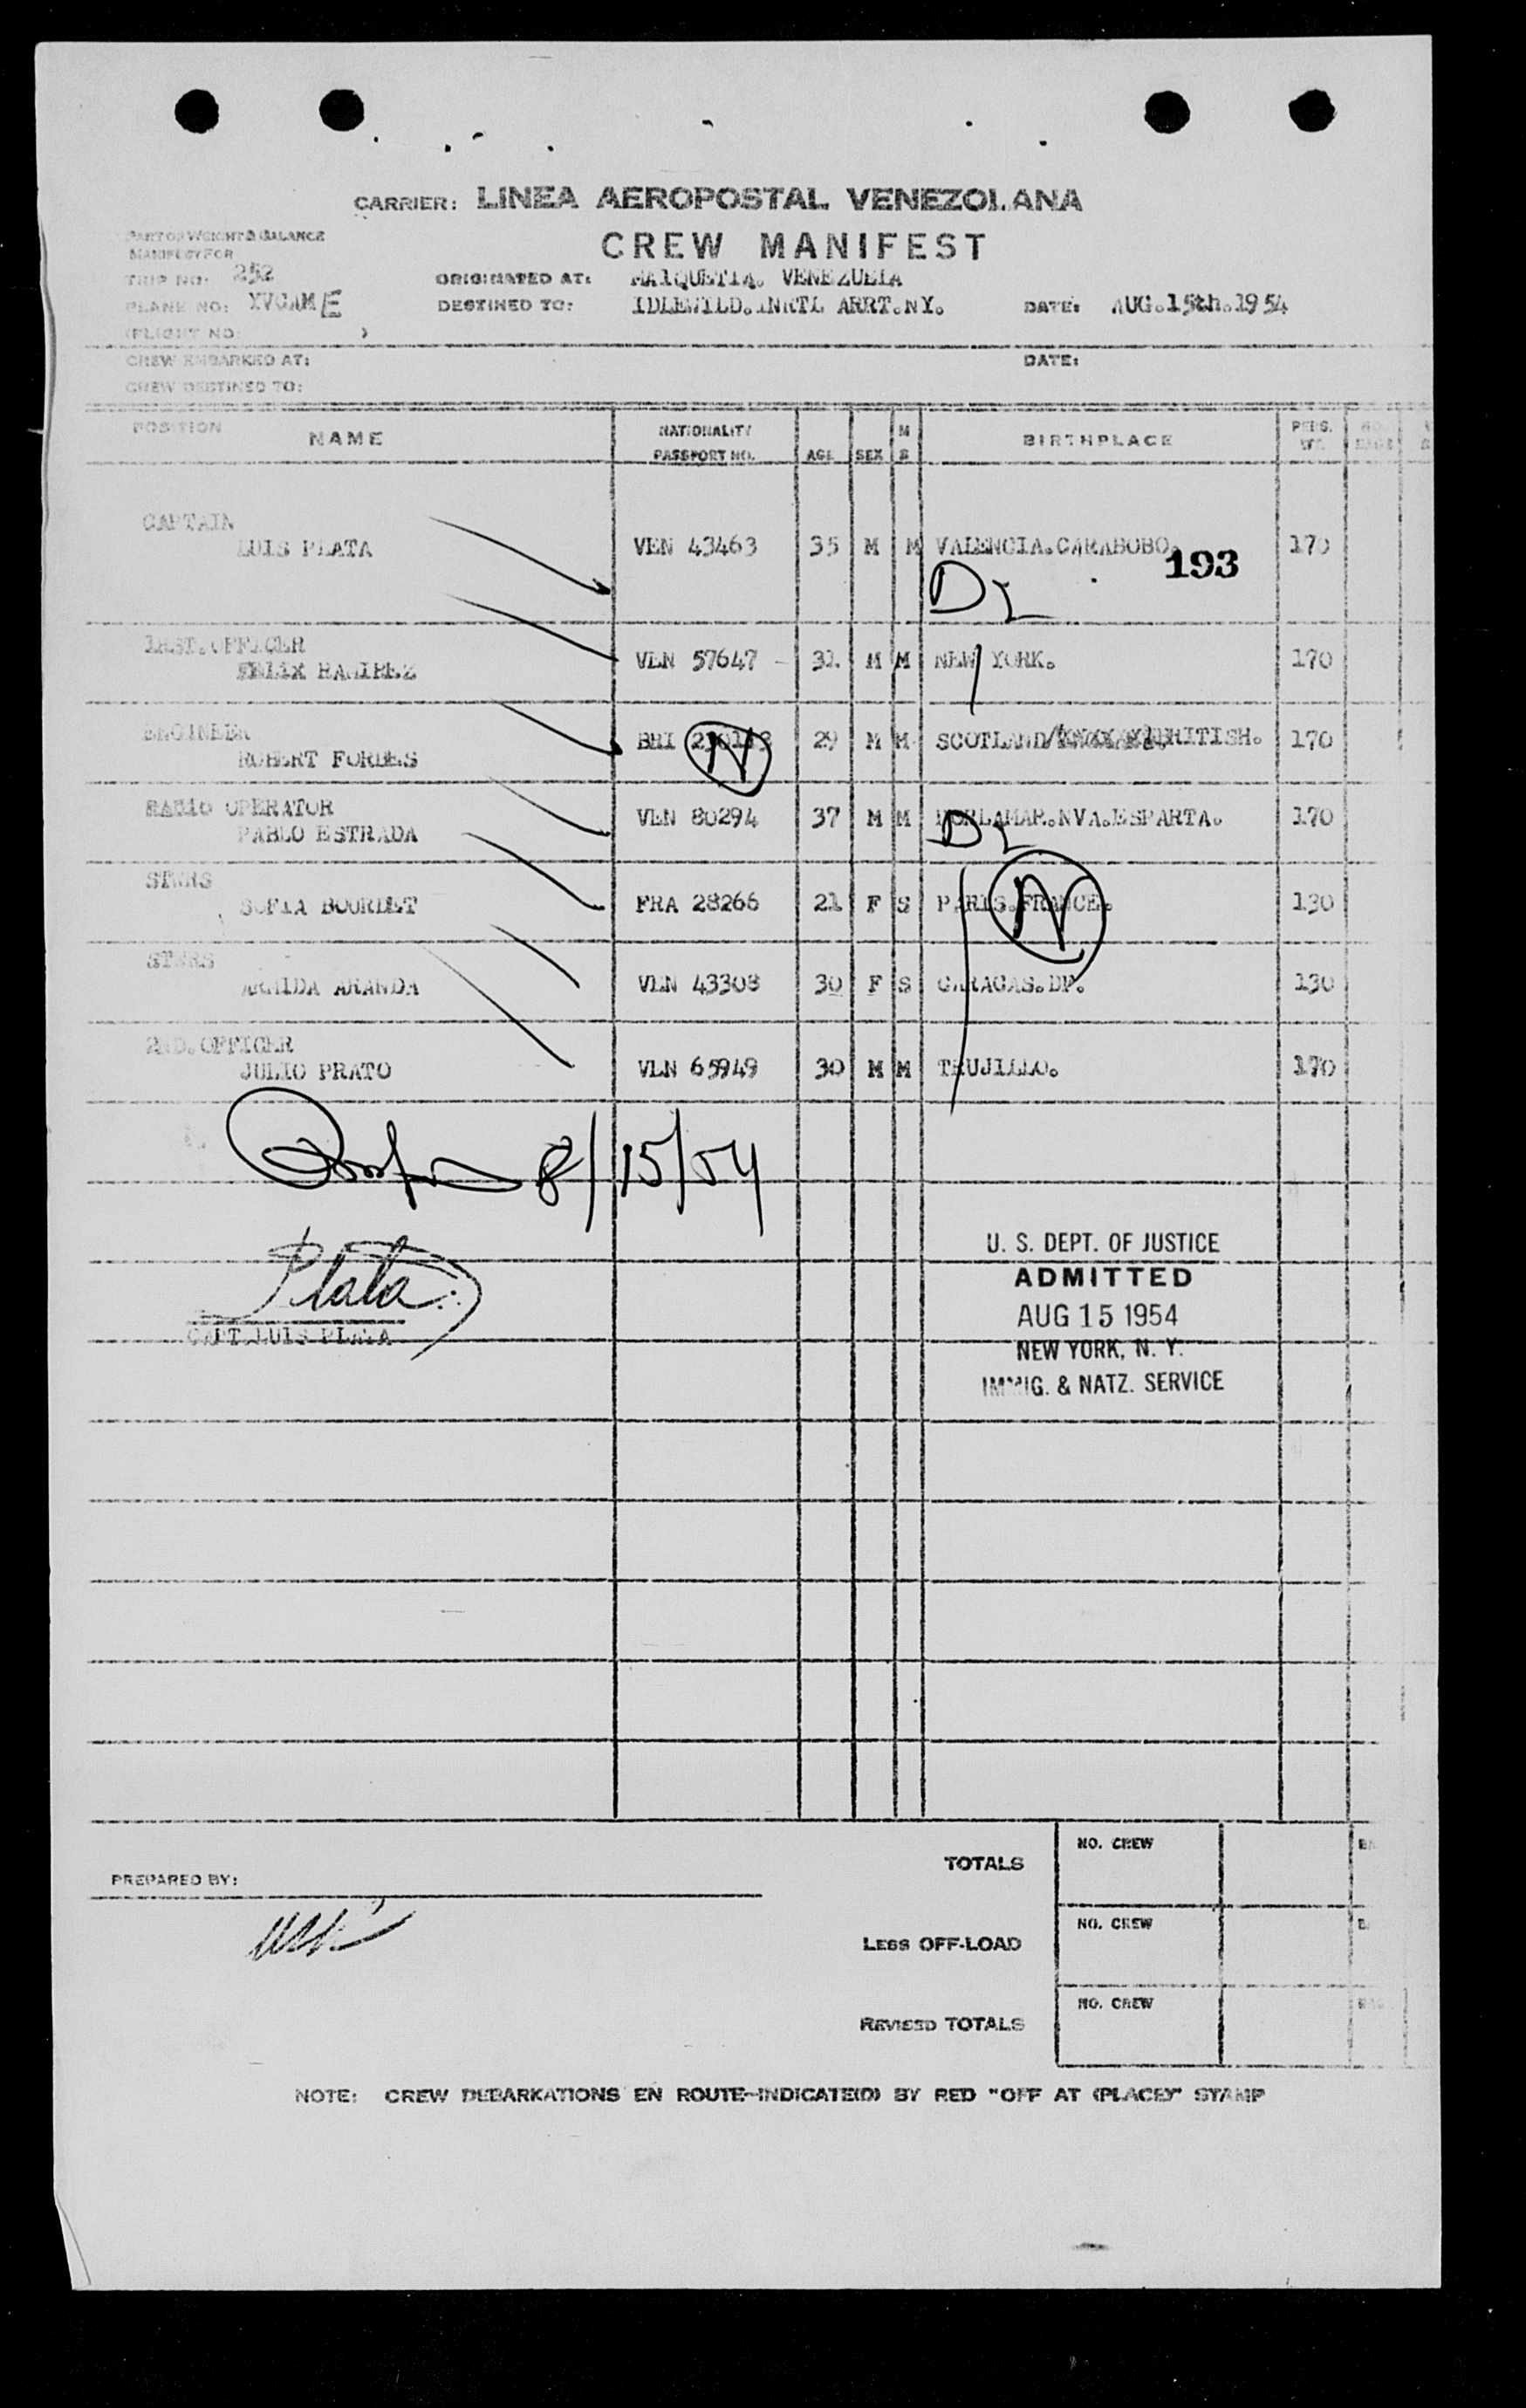 CARRIER: LINEA AEROPOSTAL VENEZOLANA
PART OF WEIGHT & BALANCE
MANIFEST FOR
CREW MANIFEST
TRIP NO: 252
ORIGINATED AT: MAIQUETIA. VENEZUELA
PLANE NO: XVCAME
DESTINED TO: IDLEWILD.INRTL ARRT.NY.
DATE: AUG.15th.1954
(FLIGHT NO )
CREW EMBARKED AT:
DATE:
CREW DESTINED TO:
POSITION NAME NATIONALITY PASSPORT NO. AGE SEX M S BIRTHPLACE PERS. WT.
CAPTAIN
LUIS PLATA VEN 43463 35 M M VALENCIA.CARABOBO. 170
193
1RST.OFFICER
FELIX RAMIREZ VEN 57647 - M M NEW YORK. 170
ENGINEER
ROBERT FORBES BRI 29 M M SCOTLAND/ BRITISH. 170
N
RADIO OPERATOR
PABLO ESTRADA VEN 80294 37 M M PORLAMAR.NVA.ESPARTA. 170
STWRS
SOFIA BOURDET FRA 28266 21 F S PARIS.FRANCE. 130
N
STWRS
ARAIDA ARANDA VEN 43308 30 F S CARACAS.DF. 130
2ND.OFFICER
JULIO PRATO VEN 65949 30 M M TRUJILLO. 170
8/15/54
Plata
CAPT.LUIS PLATA
U. S. DEPT. OF JUSTICE
ADMITTED
AUG 15 1954
NEW YORK, N. Y.
IMMIG. & NATZ. SERVICE
TOTALS NO. CREW
PREPARED BY:
LESS OFF-LOAD NO. CREW
REVISED TOTALS NO. CREW
NOTE: CREW DEBARKATIONS EN ROUTE-INDICATE(D) BY RED "OFF AT (PLACE)" STAMP